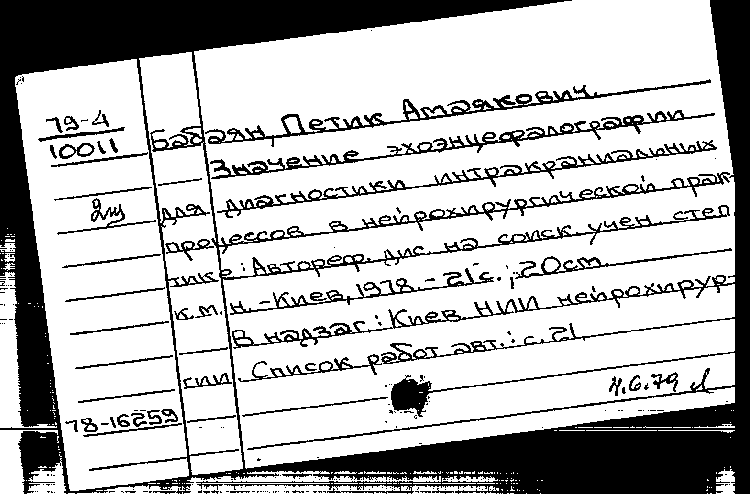 79-4
10011
Бабаян, Петик Амаякович.
Значение эхоэнцефалографии
для диагностики интракраниальных
процессов в нейрохирургической прак-
тике: Автореф. дис. на соиск. учен. степ.
к.м.н. - Киев, 1978. - 21 с.; 20 cm.
В надзаг.: Киев. НИИ нейрохирур-
гии. Список работ авт.: с. 21.
78-16259
4.6.79